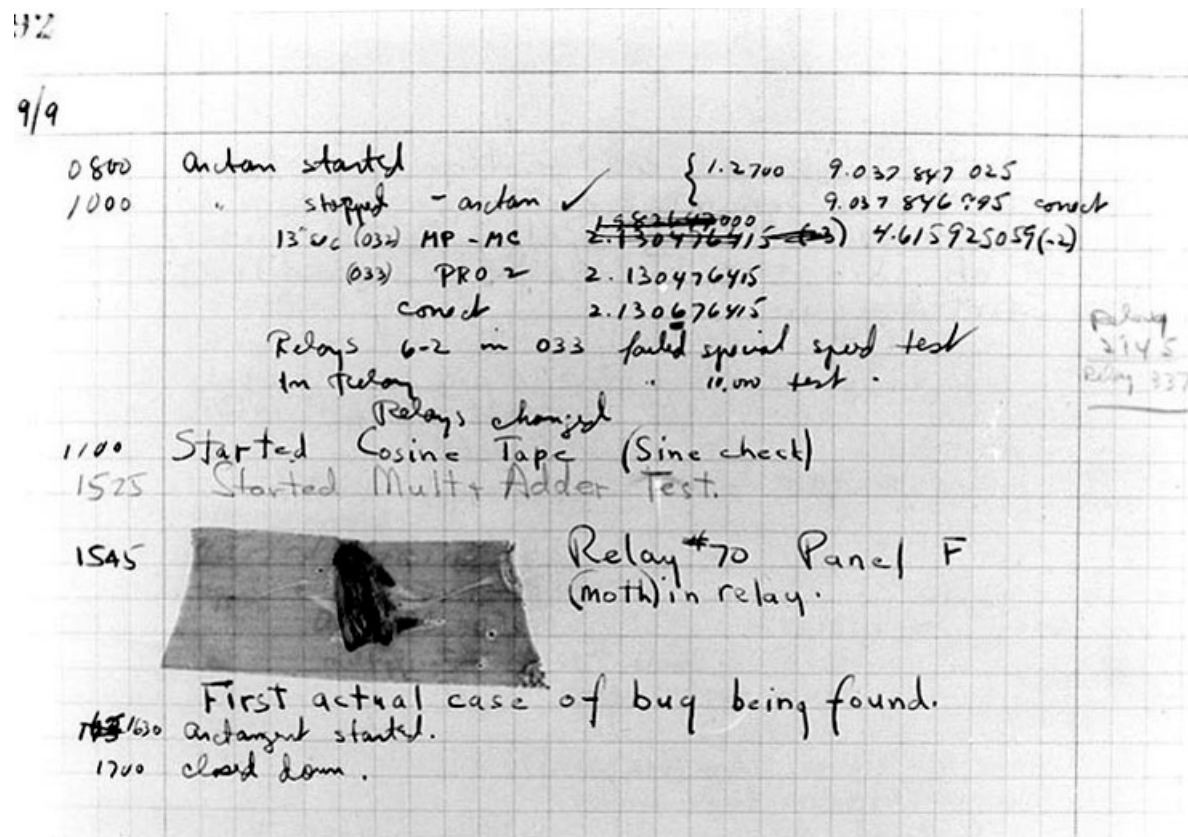 92
9/9
0800 arctan started { 1.2700 9.037 847 025
1000 " stopped - arctan ✓ 9.037 846 995 correct
13"uc (032) MP - MC 2.130476415 (-3) 4.615925059(-2)
(033) PRO 2 2.130476415
correct 2.130676415
Relays 6-2 in 033 failed special speed test
In Relay " 10.000 test .
Relays changed
Relay
2145
Relay 337
1100 Started Cosine Tape (Sine check)
1525 Started Mult + Adder Test.
1545 Relay #70 Panel F
(moth) in relay.
First actual case of bug being found.
1630 arctangent started.
1700 closed down .